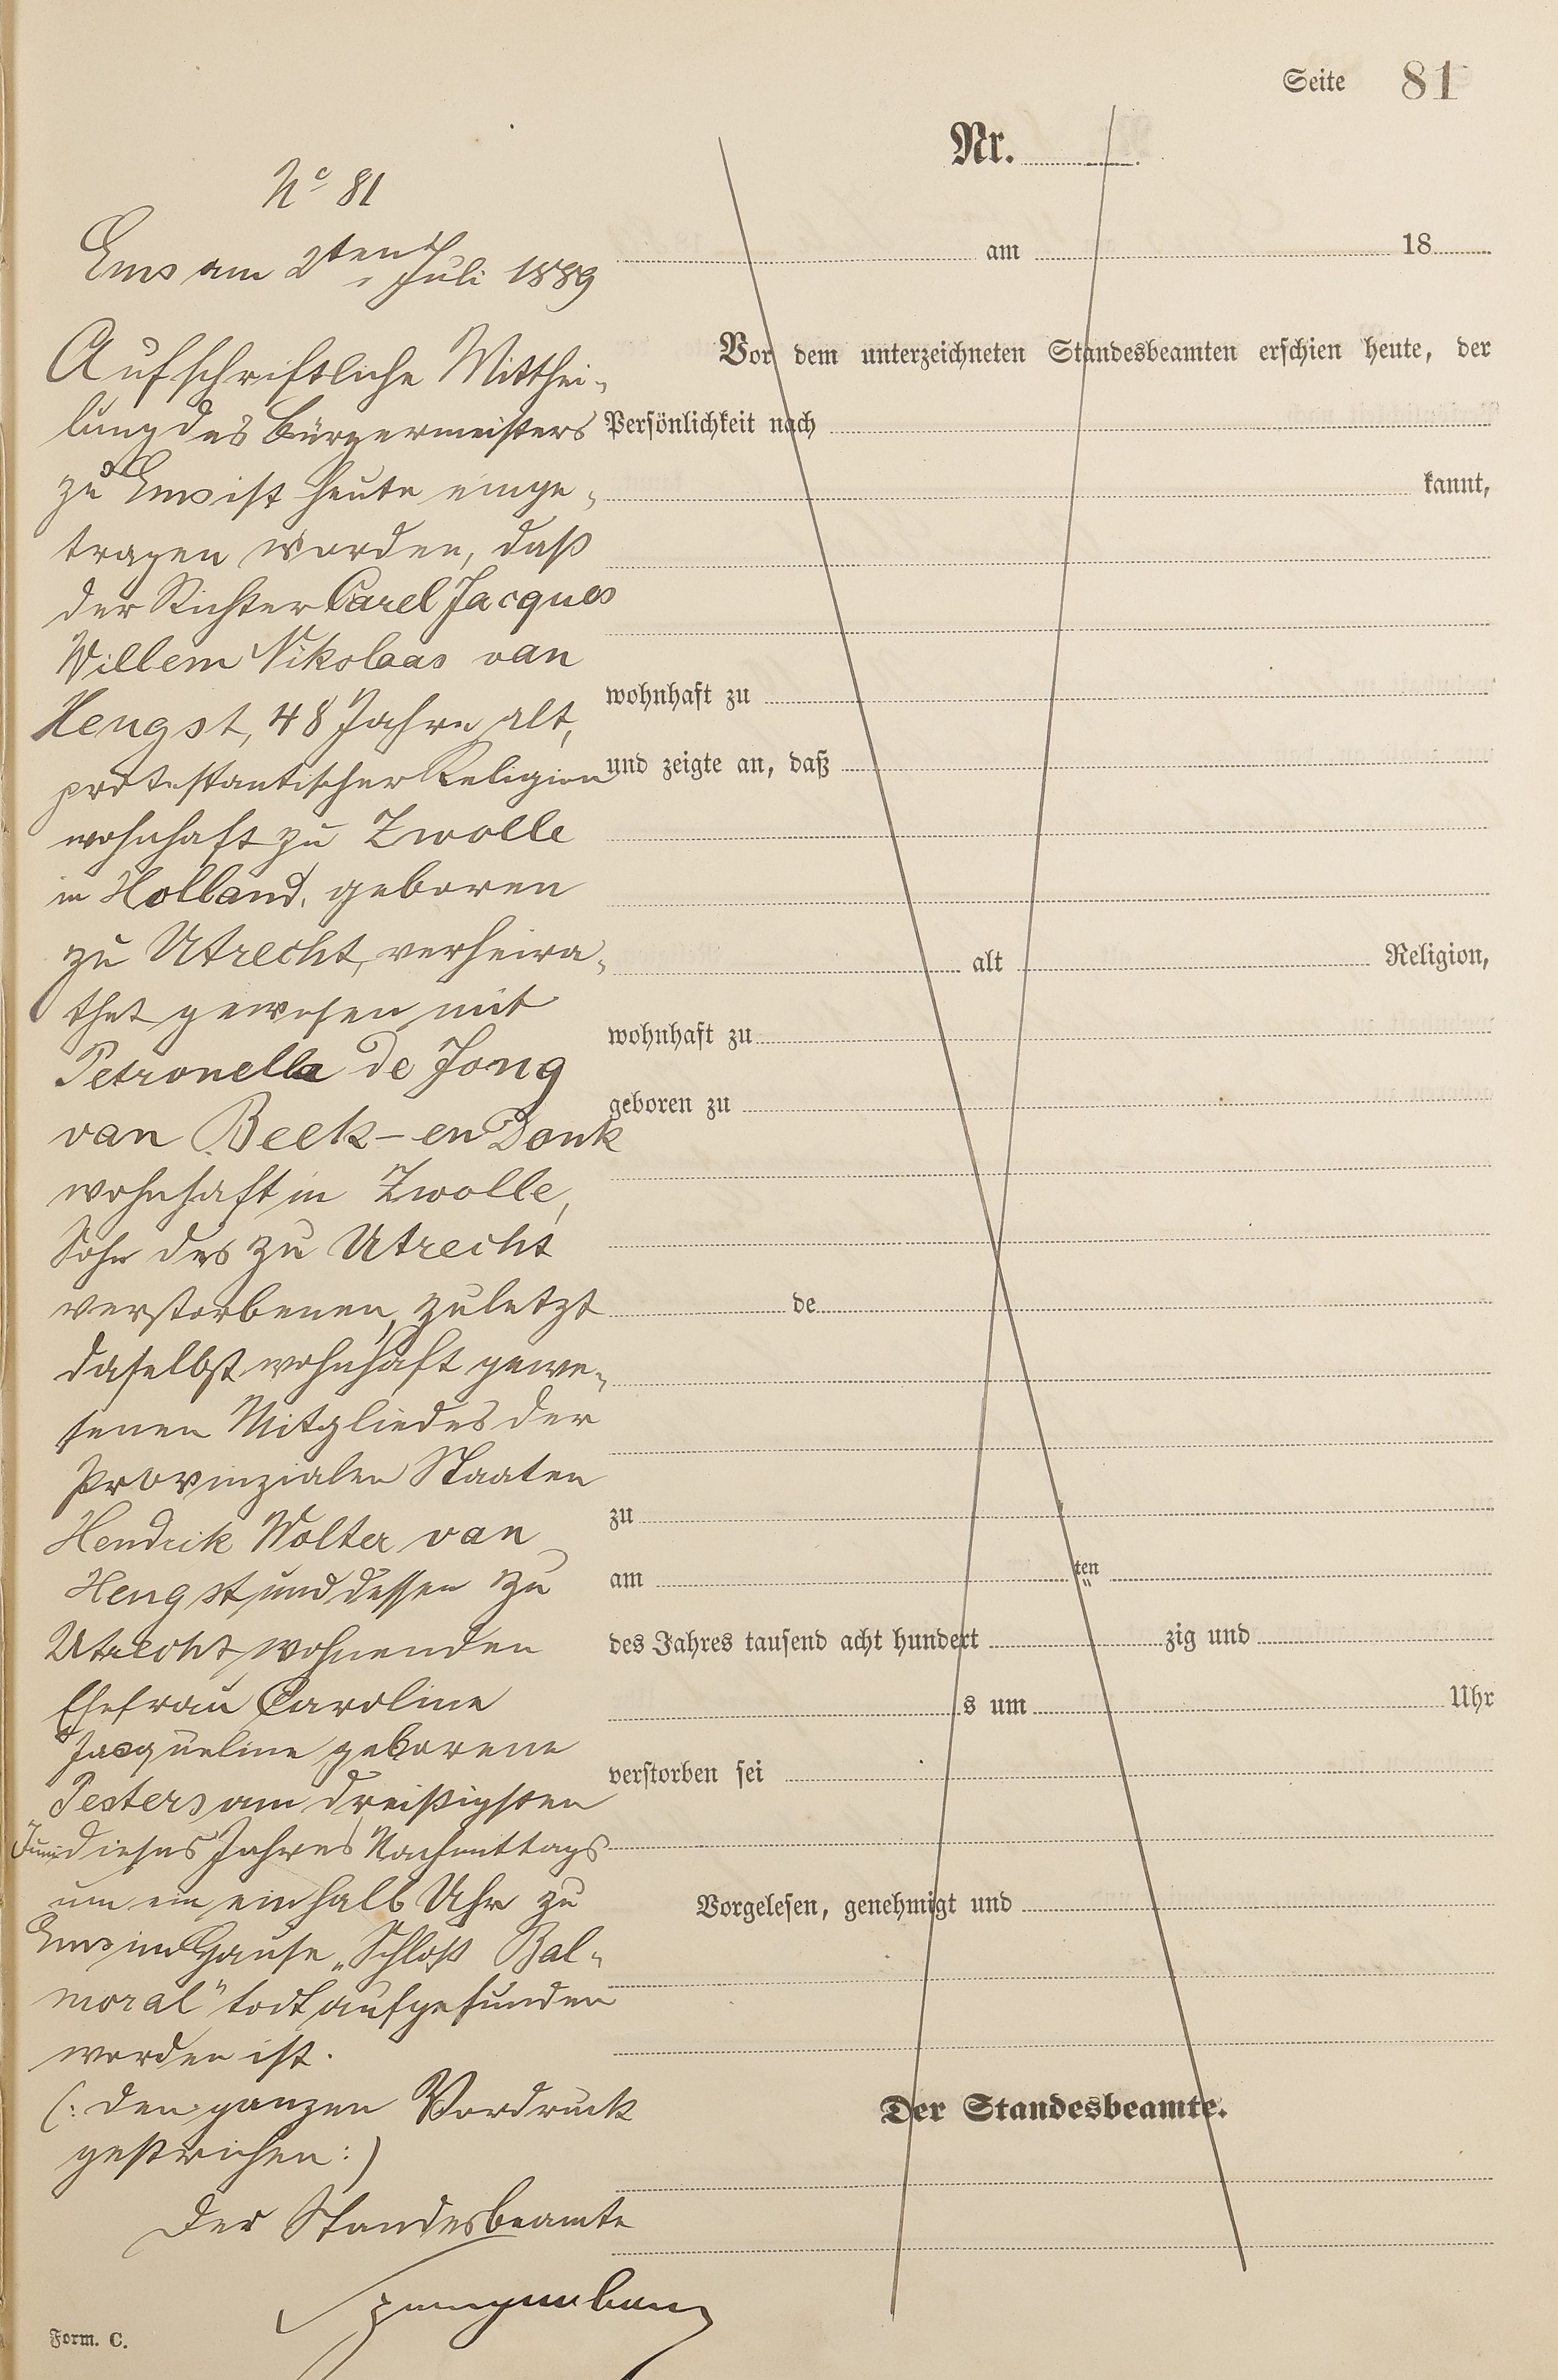 Seite 81
Nr.
No 81
Ems am 2ten Juli 1889
Auf schriftliche Mitthei-
lung des Bürgermeisters
zu Ems ist heute einge-
tragen worden, daß
der Richter Carel Jacques
Willem Nikolaas van
Hengst, 48 Jahre alt,
protestantischer Religion
wohnhaft zu Zwolle
in Holland, geboren
zu Utrecht, verheira-
thet gewesen mit
Petronella de Jong
van Beek-en Donk
wohnhaft in Zwolle,
Sohn des zu Utrecht
verstorbenen, zuletzt
daselbst wohnhaft gewe-
senen Mitgliedes der
Provinzialen Staaten
Hendrik Wolter van
Hengst und dessen zu
Utrecht wohnenden
Ehefrau Caroline
Jacqueline geborene
Pesters am dreißigsten
Juni dieses Jahres Nachmittags
um ein einhalb Uhr zu
Ems im Hause „Schloß Bal-
moral" todt aufgefunden
worden ist.
(: den ganzen Vordruck
gestrichen :)
Der Standesbeamte
am 18
Vor dem unterzeichneten Standesbeamten erschien heute, der
Persönlichkeit nach
kannt,
wohnhaft zu
und zeigte an, daß
alt Religion,
wohnhaft zu
geboren zu
de
zu
am ten
des Jahres tausend acht hundert zig und
s um Uhr
verstorben sei
Vorgelesen, genehmigt und
Der Standesbeamte.
Form. C.